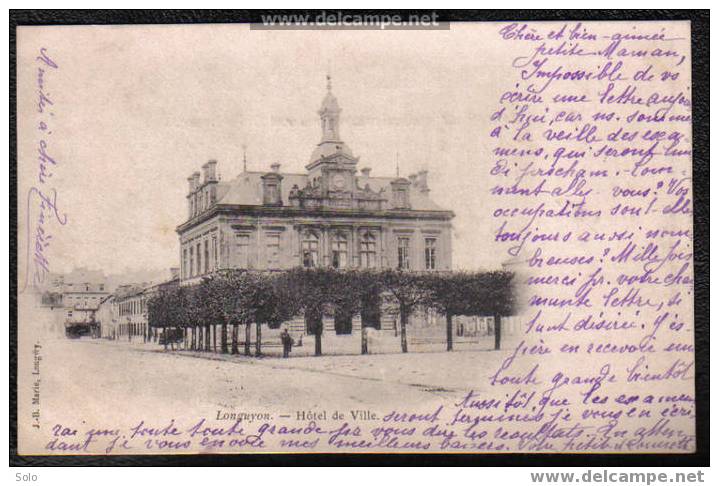 www.delcampe.net
Chère et bien-aimée
petite Maman,
Impossible de vs
écrire une lettre aujour
d'hui, car ns. sommes
à la veille des exa
mens, qui seront lun
di prochain. Com-
ment all
vous? Vos
occupations sont-elles
toujours aussi nom
breuses? Mille fois
merci pr. votre char
mante lettre, si
tant désirée. J'es-
père en recevoir une
toute grande bientôt
Aussitôt, que les examens
seront terminés je vous en écri
rai une toute toute grande pr vous dire les résultats. En atten
dant je vous envoie mes meilleurs baisers. Votre petite
Amitiés à chère
Longuyon. — Hôtel de Ville.
J.-B. Marie, Longwy.
Solo
http://www.delcampe.net